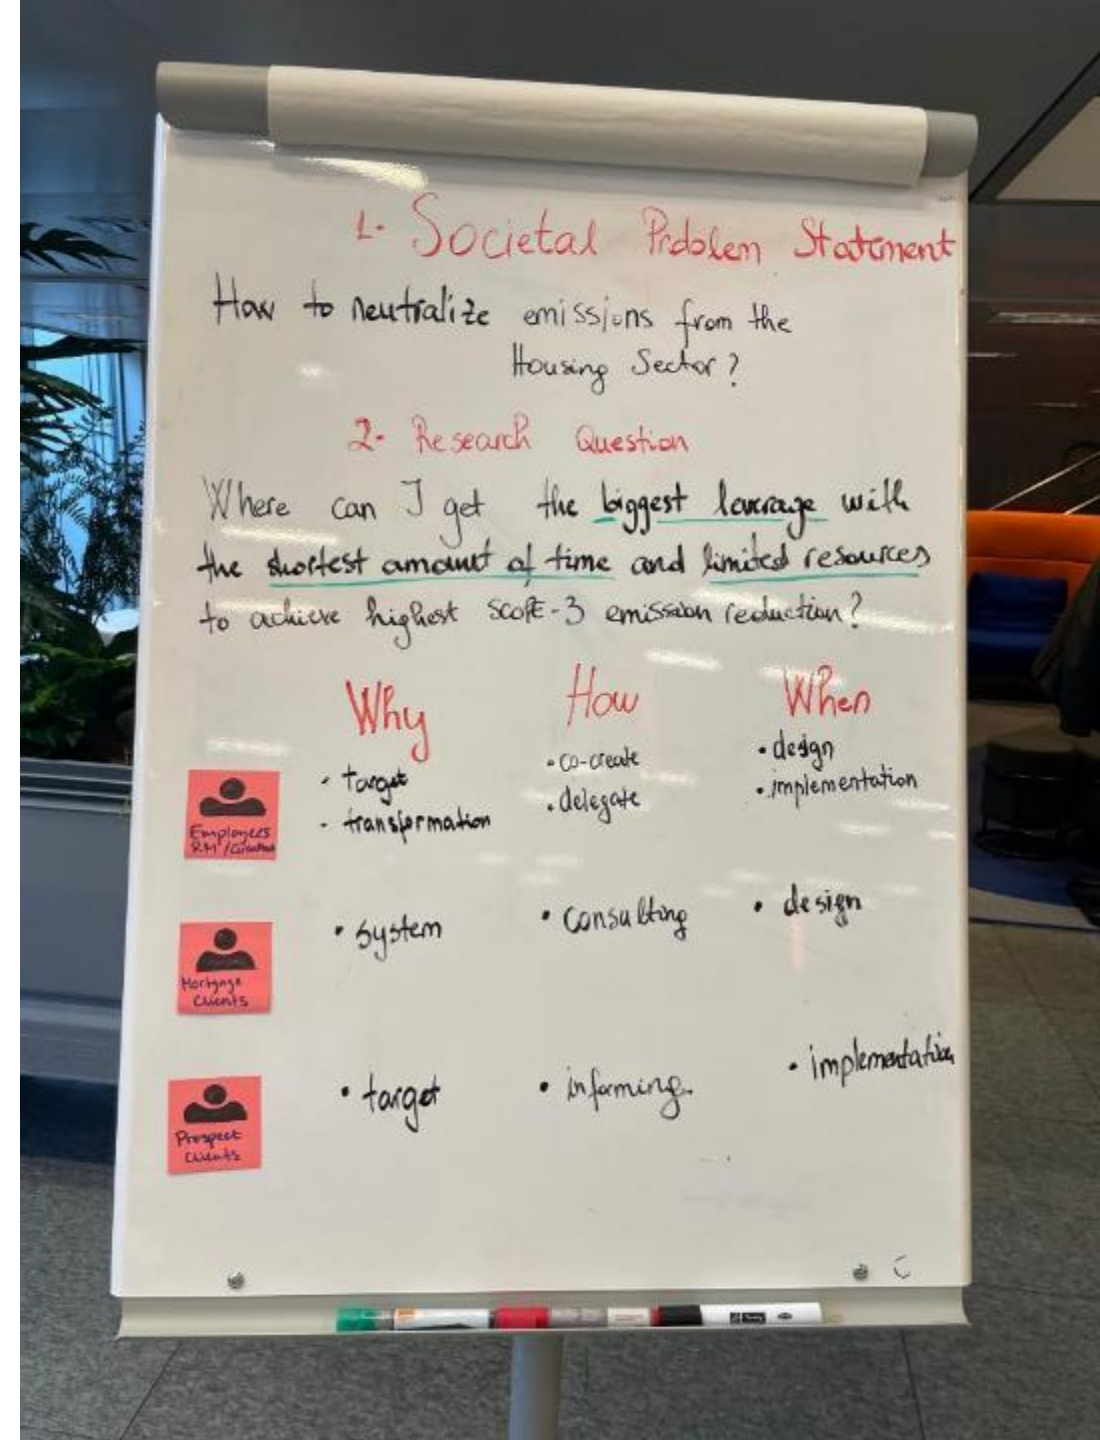 1- Societal Problem Statement
How to neutralize emissions from the
Housing Sector?
2- Research Question
Where can I get the biggest leverage with
the shortest amount of time and limited resources
to achieve highest SCOPE-3 emission reduction?
Why How When
• target • co-create • design
- transformation • delegate • implementation
Employees
RM /
• system • consulting • design
Mortgage
Clients
• target • informing • implementation
Prospect
Clients